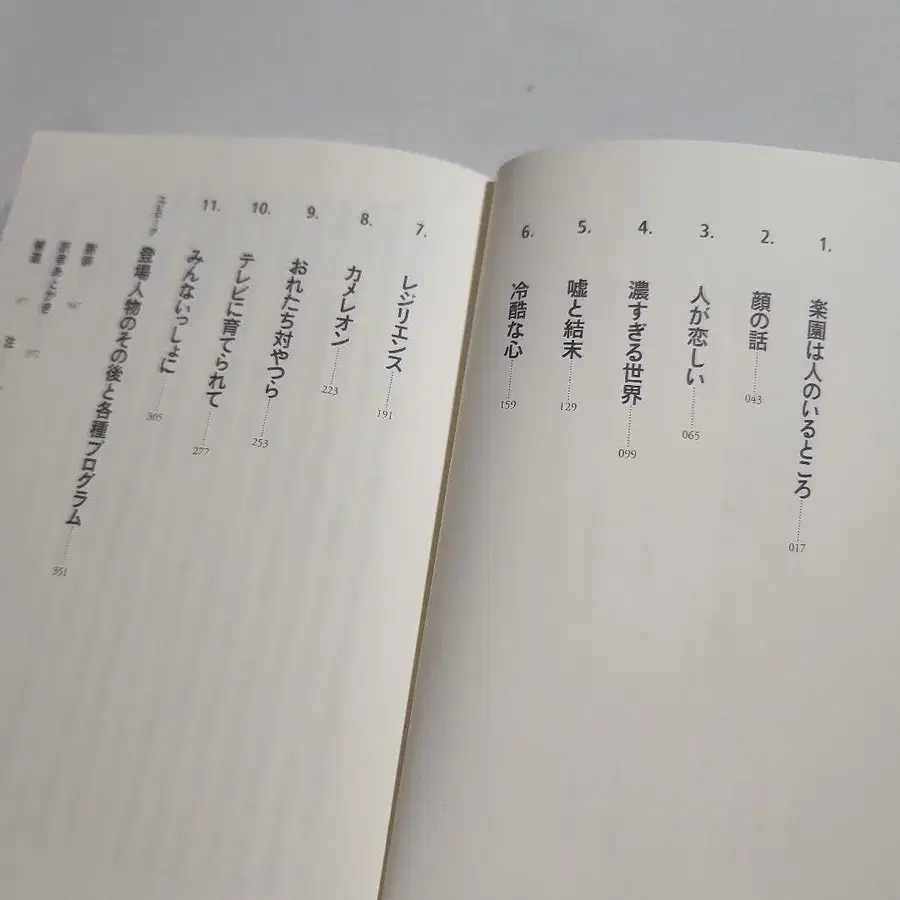 1. 楽園は人のいるところ……017
2. 顔の話……043
3. 人が恋しい……065
4. 濃すぎる世界……099
5. 嘘と結末……129
6. 冷酷な心……159
7. レジリエンス……191
8. カメレオン……223
9. おれたち対やつら……253
10. テレビに育てられて……277
11. みんないっしょに……305
エピローグ 登場人物のその後と各種プログラム……351
謝辞
訳者あとがき
注